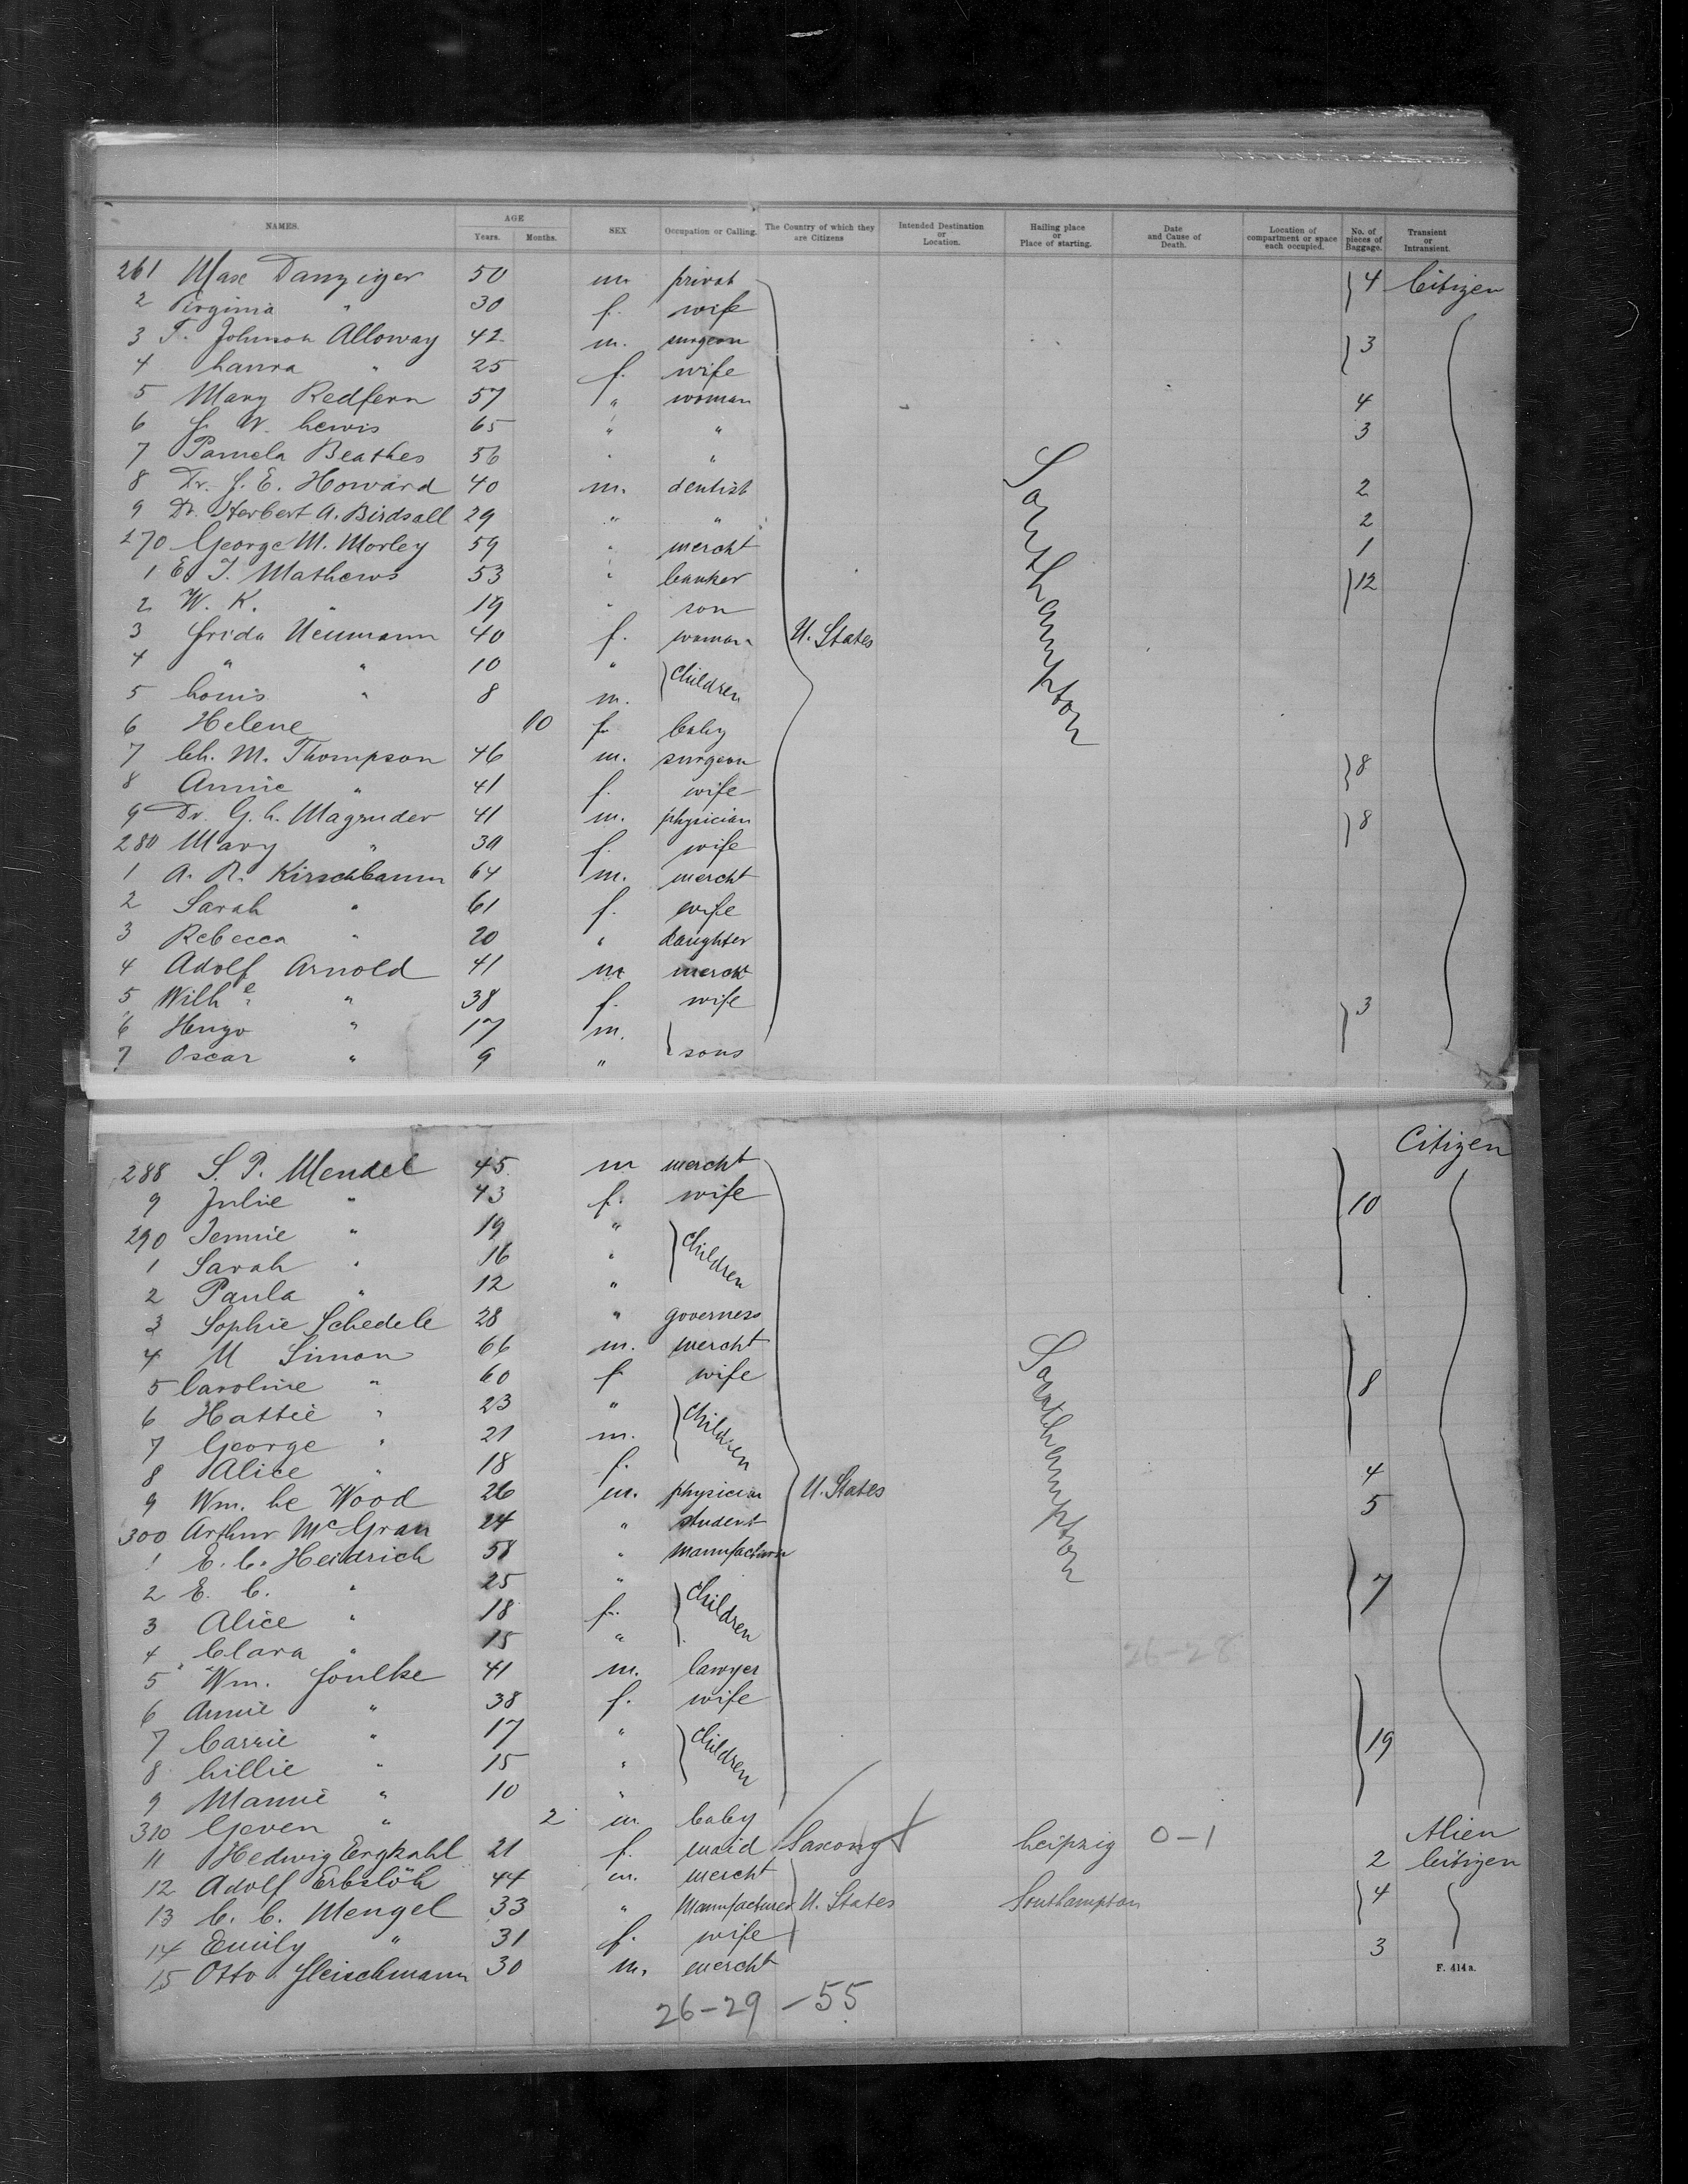 NAMES. AGE Years. Months. SEX Occupation or Calling. The Country of which they are Citizens Intended Destination or Location. Hailing place or Place of starting. Date and Cause of Death. Location of compartment or space each occupied. No. of pieces of Baggage. Transient or Intransient.
261 Max Danziger 50 m. privat 4 Citizen
2 Virginia " 30 f. wife
3 T. Johnson Alloway 42 m. surgeon 3
4 Laura " 25 f. wife
5 Mary Redfern 57 " woman 4
6 J. W. Lewis 65 " " 3
7 Pamela Beathes 56 " "
8 Dr. J. E. Howard 40 m. dentist 2
9 Dr. Herbert A. Birdsall 29 " " 2
270 George M. Morley 59 " mercht 1
1 E. T. Mathews 53 " banker 12
2 W. K. " 19 " son
3 Frida Neumann 40 f. woman U. States Southampton
4 " " 10 " children
5 Louis " 8 m.
6 Helene 10 f. baby
7 Ch. M. Thompson 46 m. surgeon 8
8 Annie " 41 f. wife
9 Dr. G. L. Magruder 41 m. physician 8
280 Mary " 30 f. wife
1 A. R. Kirschbaum 64 m. mercht
2 Sarah " 61 f. wife
3 Rebecca " 20 " daughter
4 Adolf Arnold 41 m mercht
5 Wilhe " 38 f. wife 3
6 Hugo " 17 m.
7 Oscar " 9 " sons
Citizen
288 S. P. Mendel 45 m mercht
9 Julie " 43 f. wife 10
290 Jennie " 19 " children
1 Sarah " 16 "
2 Paula " 12 "
3 Sophie Schedele 28 " governess
4 M Simon 66 m. mercht
5 Caroline " 60 f wife 8
6 Hattie " 23 " children
7 George " 21 m.
8 Alice " 18 f. 4
9 Wm. Lc Wood 26 m. physician U. States Southampton 5
300 Arthur McGran 24 " student
1 E. C. Heidrich 58 " manufacturer
2 E. C. " 25 " children 7
3 Alice " 18 f.
4 Clara " 15 " 26-28
5 Wm. Foulke 41 m. lawyer
6 Annie " 38 f. wife
7 Carrie " 17 " children 19
8 Lillie " 15 "
9 Mamie " 10 "
310 Geven " 2 m. baby Alien
11 Hedwig Ergkahl 21 f. maid Saxony Leipzig 0-1 2 Citizen
12 Adolf Erbslöh 44 m. mercht 4
13 C. C. Mengel 33 " Manufacturer U. States Southampton
14 Emily " 31 f. wife 3
15 Otto Fleischmann 30 m. mercht
F. 414 a.
26-29-55